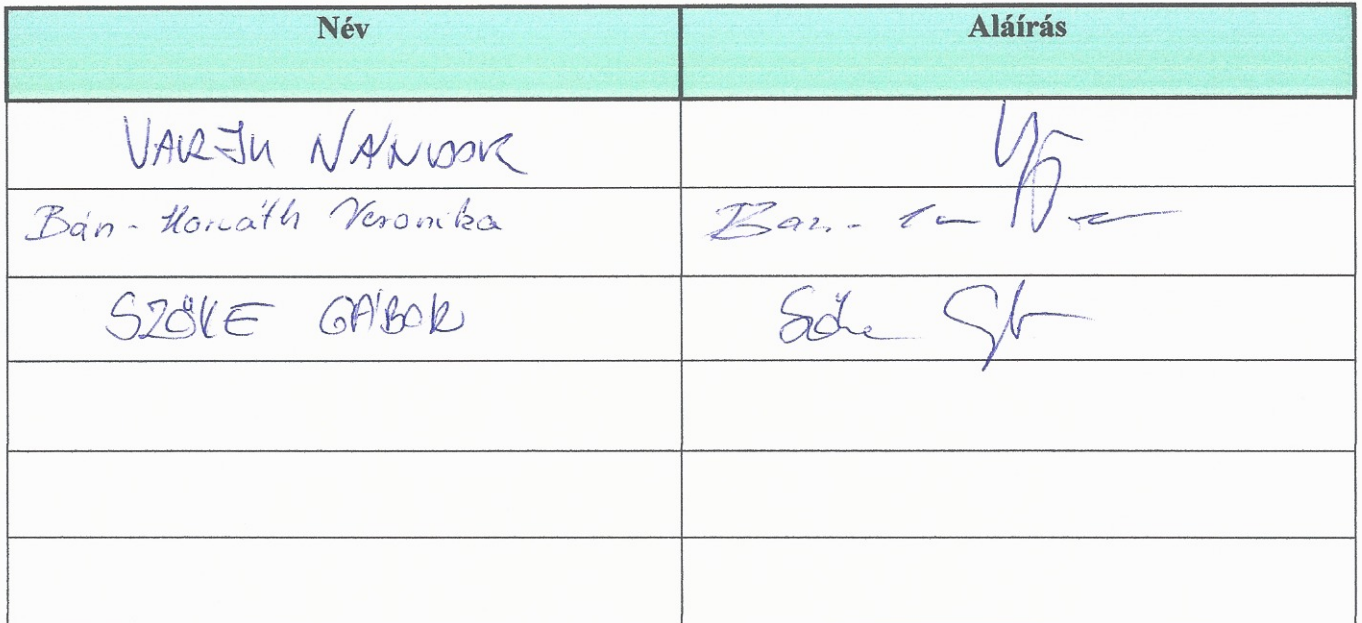 Név Aláírás
VARJU NÁNDOR
Bán-Horváth Veronika Bán-
SZŐKE GÁBOR Szőke